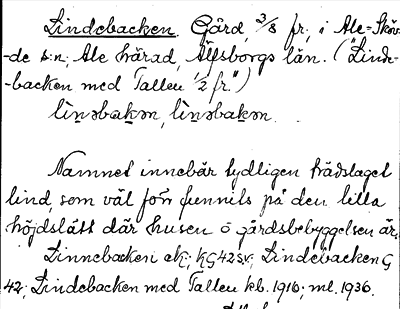 Lindebacken. Gård, 3/8 fr., i Ale-Sköv-
-de s:n, Ale härad, Älfsborgs län. ("Linde-
-backen med Tallen 1/2 fr")
lìnəbakən, lìnəbakən.
Namnet innebär tydligen trädslaget
lind, som väl förr funnits på den lilla
höjdslätt där husen o gårdsbebyggelsen är.
Linnebacken ek; KG 42 s.v; Lindebacken G
42; Lindebacken med Tallen kb. 1916; ml. 1936.